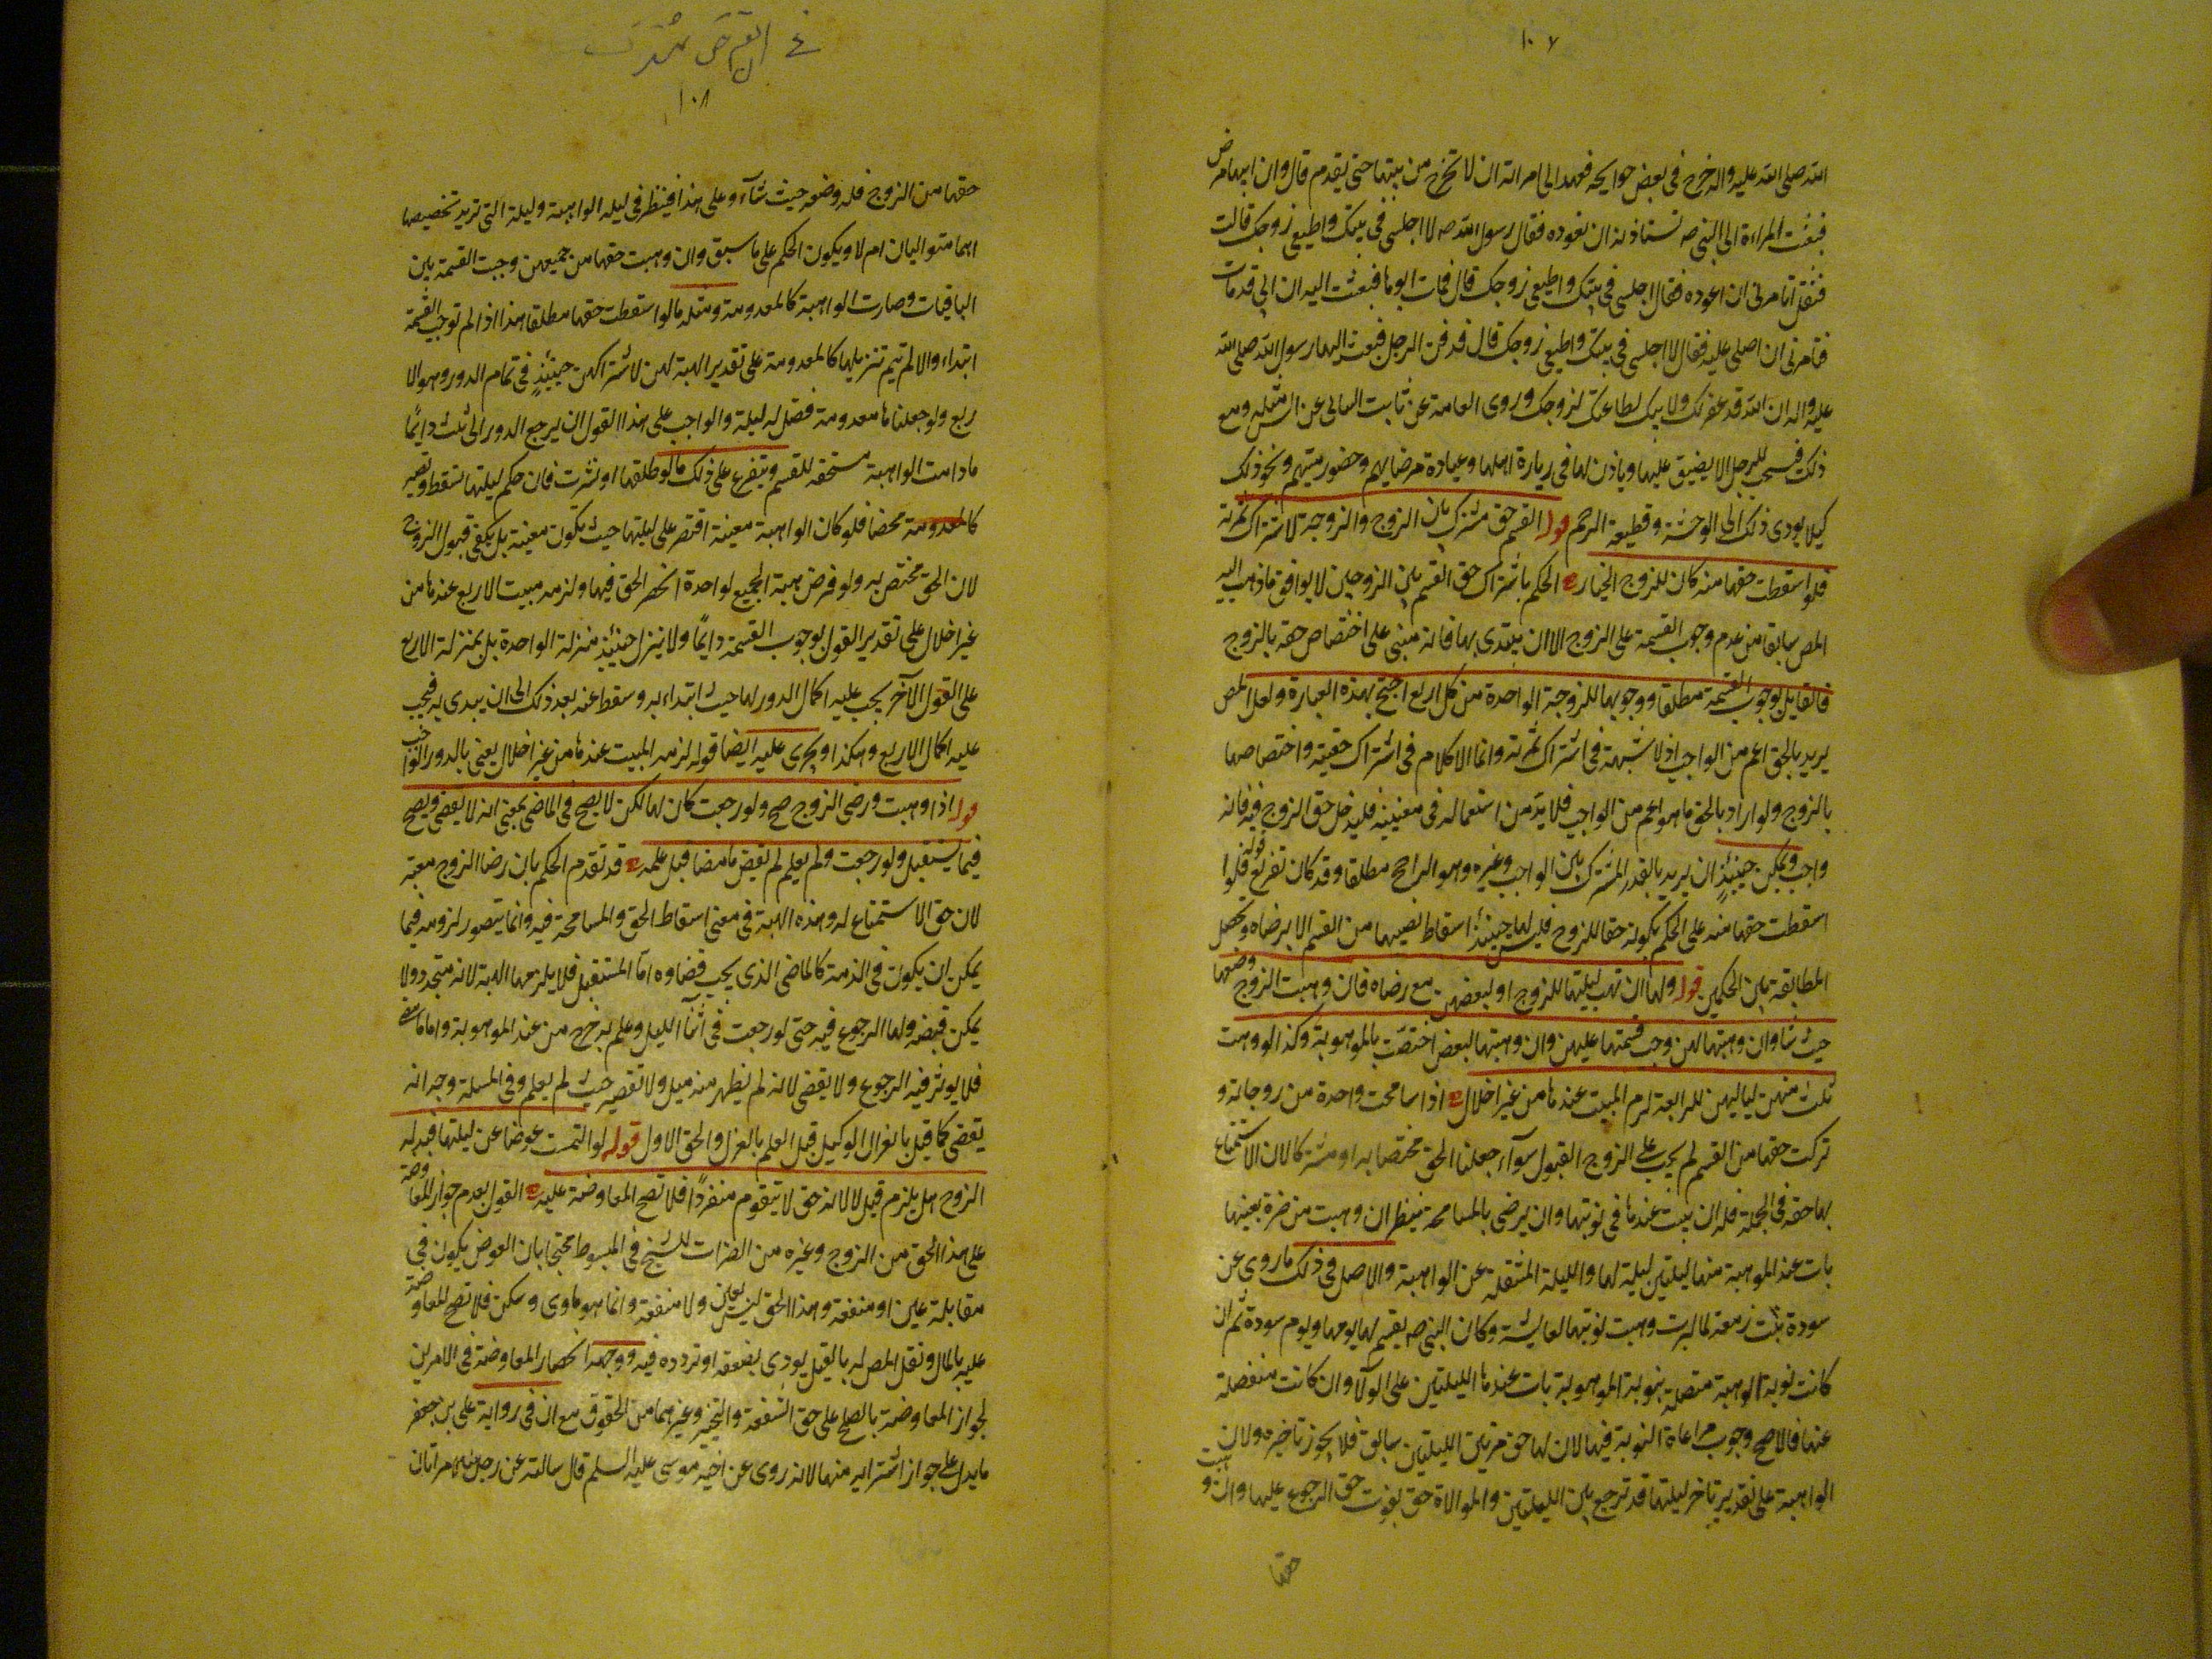 ١٠٧
الله صلى الله عليه واله خرج فى بعض حوايجه فعهد الى امراته ان لا تخرج من بيتها حتى يقدم قال وان ابيها مرض
فبعثت المراءة الى النبى صه تستاذنه ان تعوده فقال رسول الله صه لا اجلسى فى بيتك واطيعى زوجك قالت
فثقل فتامرنى ان اعوده فقال اجلسى فى بيتك واطيعى زوجك قال فمات ابوها فبعثت اليه ان ابى قد مات
فتامرنى ان اصلى عليه فقال لا اجلسى فى بيتك واطيعى زوجك قال فدفن الرجل فبعث اليها رسول الله صلى الله
عليه واله ان الله قد غفر لك ولابيك لطاعتك لزوجك وروى العامة عن ثابت عن انس مثله ومع
ذلك فيستحب للرجل الا يضيق عليها وياذن لها فى زيارة اهلها وعيادة مرضاهم وحضور ميتهم ونحو ذلك
كيلا يودى ذلك الى الوحشة وقطيعة الرحم قوله القسم حق مشترك بين الزوج والزوجة لاشتراك ثمرته
فلو اسقطت حقها منه كان للزوج الخيار الحكم باشتراك حق القسم بين الزوجين لا يوافق ما ذهب اليه
المص سابقا من عدم وجوب القسمة على الزوج الا ان يبتدى بها فانه مبنى على اختصاص حقه بالزوج
فالقايل بوجوب القسمة مطلقا ووجوبها للزوجة الواحدة من كل اربع احتج بهذه العبارة ولعل المص
يريد بالحق اعم من الواجب اذ لا شبهة فى اشتراك ثمرته وانما الكلام فى اشتراك حقيته واختصاصها
بالزوج ولو اراد بالحق ما هو اعم من الواجب فلا بد من استعماله فى معنييه فليدخل حق الزوج فيه فانه
واجب ويمكن حينئذ ان يريد بالقدر المشترك بين الواجب وغيره وهو الراجح مطلقا وقد كان تفريع قوله فلو
اسقطت حقها منه على الحكم بكونه حقا للزوج فليس لها حينئذ اسقاط نصيبها من القسم الا برضاه وتحصل
المطابقة بين الحكمين قوله ولها ان تهب ليلتها للزوج او لبعضهن مع رضاه فان وهبت الزوج وضعها
حيث شا وان وهبتها لهن وجب قسمتها عليهن وان وهبتها لبعض اختصت بالموهوبة وكذا لو وهبت
ثلث منهن لياليهن للرابعة لزم المبيت عندها من غير اخلال اذا سامحت واحدة من زوجاته و
تركت حقها من القسم لم يجب على الزوج القبول سواء جعلنا الحق مختصا به او مشتركا لان الاستمتاع
بها حقه فى الجملة فله ان يبيت عندها فى نوبتها وان يرضى بالمسامحة فينظر ان وهبت من ضرة بعينها
بات عند الموهبة منها ليلتين ليلة لها والليلة المنتقلة عن الواهبة والاصل فى ذلك ما روى عن
سودة بنت زمعة لما كبرت وهبت نوبتها لعايشة وكان النبى صه يقسم لها يومها ويوم سودة ثم ان
كانت نوبة الواهبة متصلة بنوبة الموهوبة بات عندها الليلتين على الولآ وان كانت منفصلة
عنها فالاصح وجوب مراعاة النوبة فيها لان لها حق مر بين الليلتين سابق فلا يجوز تاخيره ولان
الواهبة على تقدير تاخر ليلتها قد ترجع بين الليلتين والموالاة حق يفوت حق الرجوع عليها وان وهبت
حقها
١٠٨
حقها من الزوج فله وضعه حيث شآء وعلى هذا فينظر فى ليلة الواهبة وليلة التى تريد تخصيصها
اهما متواليان ام لا ويكون الحكم على ما سبق وان وهبت حقها من جميعهن وجبت القسمة بين
الباقيات وصارت الواهبة كالمعدومة ومثله ما لو اسقطت حقها مطلقا هذا اذا لم توجب القسمة
ابتداء والا لم يتم تنزيلها كالمعدومة على تقدير الهبة لهن لاشتراكهن حينئذ فى تمام الدور وهو الا
ربع ولو جعلناها معدومة فضل له ليلة والواجب على هذا القول ان يرجع الدور الى ثلث دايما
ما دامت الواهبة مستحقه للقسم ويتفرع على ذلك ما لو طلقها او نشزت فان حكم ليلتها تسقط وتصير
كالمعدومة محضا فلو كان الواهبة معينة اقتصر على ليلتها حيث تكون معينة بل يكفى قبول الزوج
لان الحق مختص به ولو فرض هبة الجميع لواحدة انحصر الحق فيها ولزمه مبيت الاربع عندها من
غير اخلال على تقدير القول بوجوب القسمة دايما ولا ينزل حينئذ منزلة الواحدة بل بمنزلة الاربع
على القول الآخر يجب عليه اكمال الدور لها حيث ابتداء به وسقط عنه بعد ذلك الى ان يبدى به فيجب
عليه اكمال الاربع وهكذا ويجرى عليه ايضا قوله لزمه المبيت عندها من غير اخلال يعنى بالدور الواجب
قوله اذا وهبت ورضى الزوج صح ولو رجعت كان لها لكن لا يصح فى الماضى بمعنى انه لا يقضى ويصح
فيما يستقبل ولو رجعت ولم يعلم لم يقض ما مضا قبل علمه قد تقدم الحكم بان رضا الزوج معتبر
لان حق الاستمتاع له وهذه الهبة فى معنى اسقاط الحق والمسامحة فيه وانما يتصور لزومه فيما
يمكن ان يكون فى الذمة كالماضى الذى يجب قضاوه اما المستقبل فلا يلزمها الهبة لانه متجدد ولا
يمكن قبضه ولها الرجوع فيه حتى لو رجعت فى اثنآ الليل وعلم به خرج من عند الموهوبة واما ما مضى
فلا يوثر فيه الرجوع ولا يقضى لانه لم يظهر منه ميل ولا تقصير حيث لم يعلم وفى المسلة وجه انه
يقضى كما قيل بانعزال الوكيل قبل العلم بالعزل والحق الاول قوله لو التمست عوضا عن ليلتها فبذله
الزوج هل يلزم قيل لا لانه حق لا يتقوم منفردا فلا تصح المعاوضة عليه القول بعدم جواز المعاوضة
على هذا الحق من الزوج وغيره من الضرات للشيخ فى المبسوط محتجا بان العوض يكون فى
مقابلة عين او منفعة وهذا الحق ليس بعين ولا منفعة وانما هو ماوى وسكن فلا تصح المعاوضة
عليه بالمال ونقل المص له بالقيل يودى بضعفه او تردده فيه ووجهه انحصار المعاوضة فى الامرين
لجواز المعاوضة بالصلح على حق الشفعة والتحجير وغيرهما من الحقوق مع ان فى رواية على بن جعفر
ما يدل على جواز اشترايه منها لانه روى عن اخيه موسى عليه السلم قال سالته عن رجل له امراتان